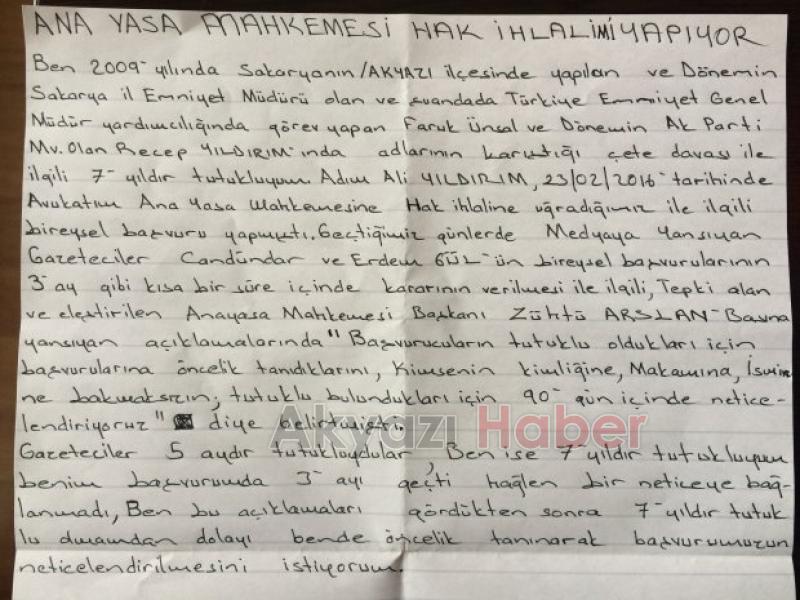 ANA YASA MAHKEMESİ HAK İHLALİMİ YAPIYOR
Ben 2009-yılında Sakaryanın/AKYAZI ilçesinde yapılan ve Dönemin
Sakarya il Emniyet Müdürü olan ve şuandada Türkiye Emniyet Genel
Müdür yardımcılığında görev yapan Faruk Ünsal ve Dönemin Ak Parti
Mv. Olan Recep YILDIRIM'ında adlarının karıştığı çete davası ile
ilgili 7-yıldır tutukluyum. Adım Ali YILDIRIM, 23/02/2016-tarihinde
Avukatım Ana Yasa Mahkemesine Hak ihlaline uğradığımız ile ilgili
bireysel başvuru yapmıştı. Geçtiğimiz günlerde Medyaya Yansıyan
Gazeteciler Candündar ve Erdem GÜL-ün bireysel başvurularının
3-ay gibi kısa bir süre içinde kararının verilmesi ile ilgili, Tepki alan
ve eleştirilen Anayasa Mahkemesi Başkanı Zühtü ARSLAN-Basına
yansıyan açıklamalarında "Başvurucuların tutuklu oldukları için
başvurularına öncelik tanıdıklarını, Kimsenin kimliğine, Makamına, İsmi
ne bakmaksızın, tutuklu bulundukları için 90-gün içinde netice-
lendiriyoruz" diye belirtmişti.
Akyazı Haber
Gazeteciler 5 aydır tutukluydular, Ben ise 7-yıldır tutukluyum
benim başvurumda 3-ayı geçti hağlen bir neticeye bağ-
lanmadı, Ben bu açıklamaları gördükten sonra 7-yıldır tutuk
lu olmamdan dolayı bende öncelik tanınarak başvurumuzun
neticelendirilmesini istiyorum.